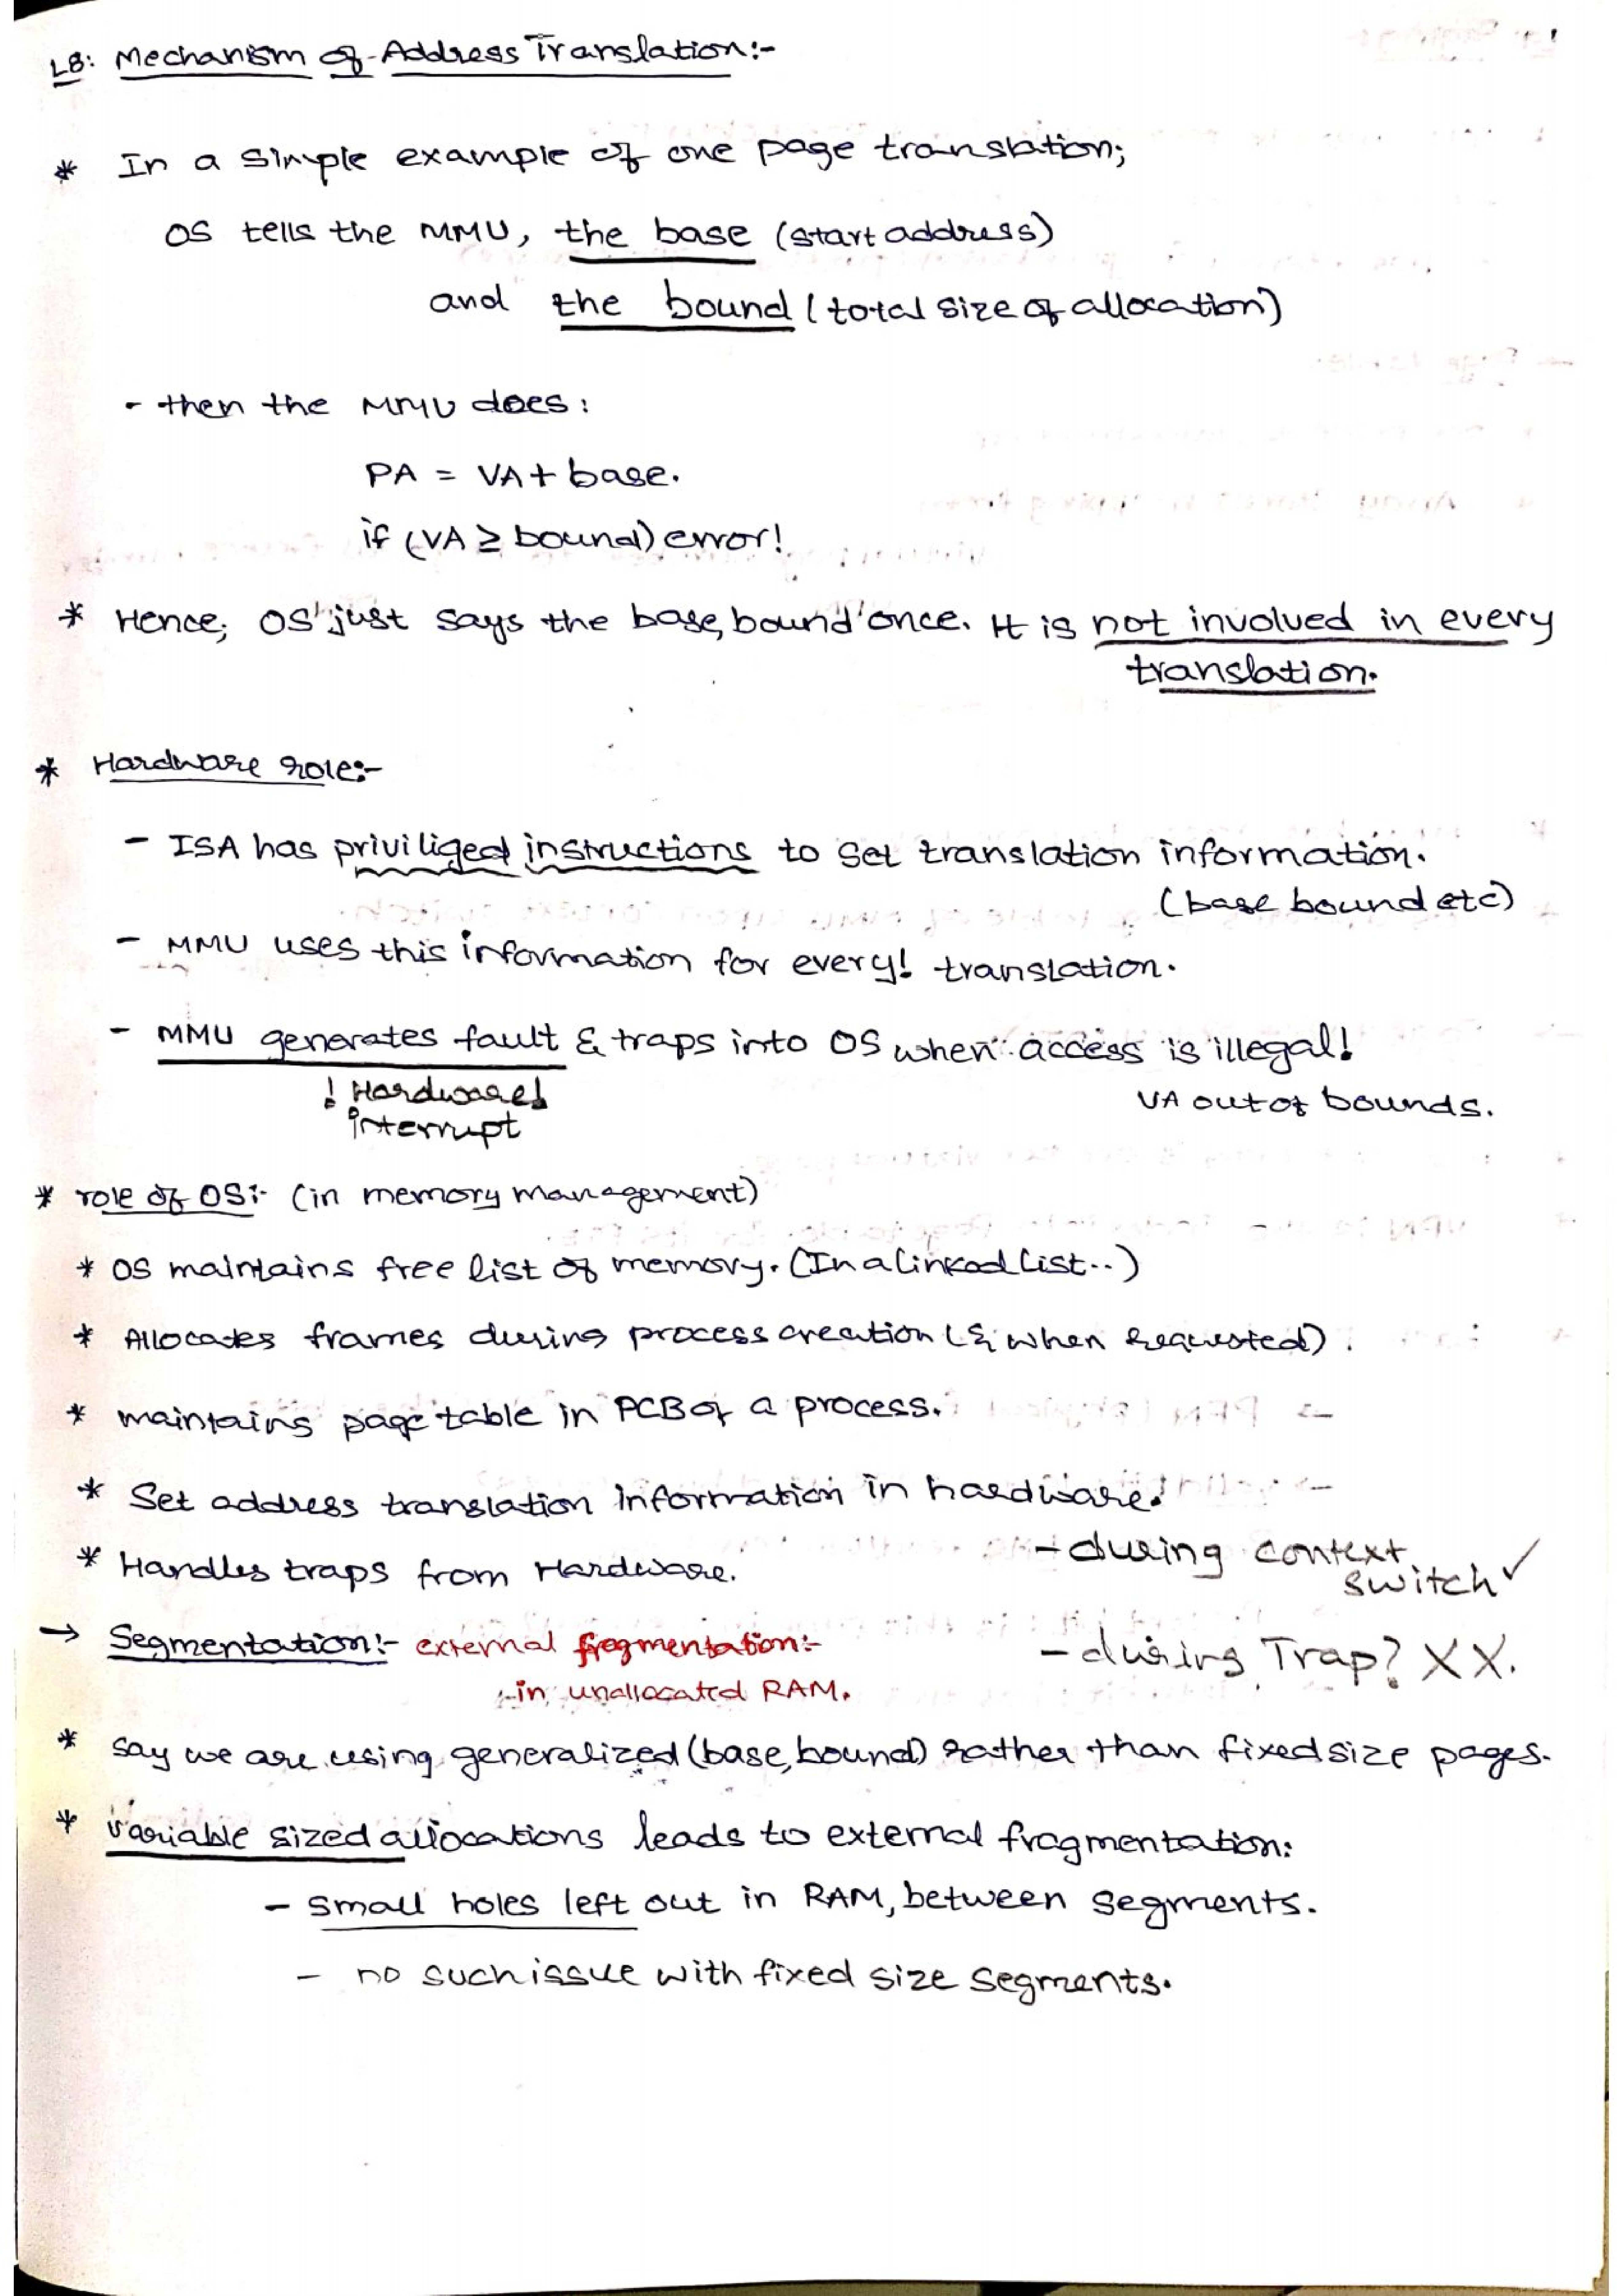 L8: Mechanism of Address Translation:-
* In a simple example of one page translation;
OS tells the MMU, the base (start address)
and the bound (total size of allocation)
- then the MMU does:
PA = VA + base.
if (VA ≥ bound) error!
* Hence, OS 'just says the base, bound' once. It is not involved in every
translation.
* Hardware role:-
- ISA has priviliged instructions to set translation information.
(base bound etc)
- MMU uses this information for every! translation.
- MMU generates fault & traps into OS when access is illegal!
! Hardware!
interrupt
VA out of bounds.
* role of OS:- (in memory management)
* OS maintains free list of memory. (In a linked list..)
* Allocates frames during process creation (& when requested).
* maintains page table in PCB of a process.
* Set address translation information in hardware.
- during context
switch ✓
* Handles traps from Hardware.
- during Trap? XX.
→ Segmentation:- external fragmentation:-
:-in unallocated RAM.
* say we are using generalized (base, bound) rather than fixed size pages.
* variable sized allocations leads to external fragmentation:
- small holes left out in RAM, between segments.
- no such issue with fixed size segments.